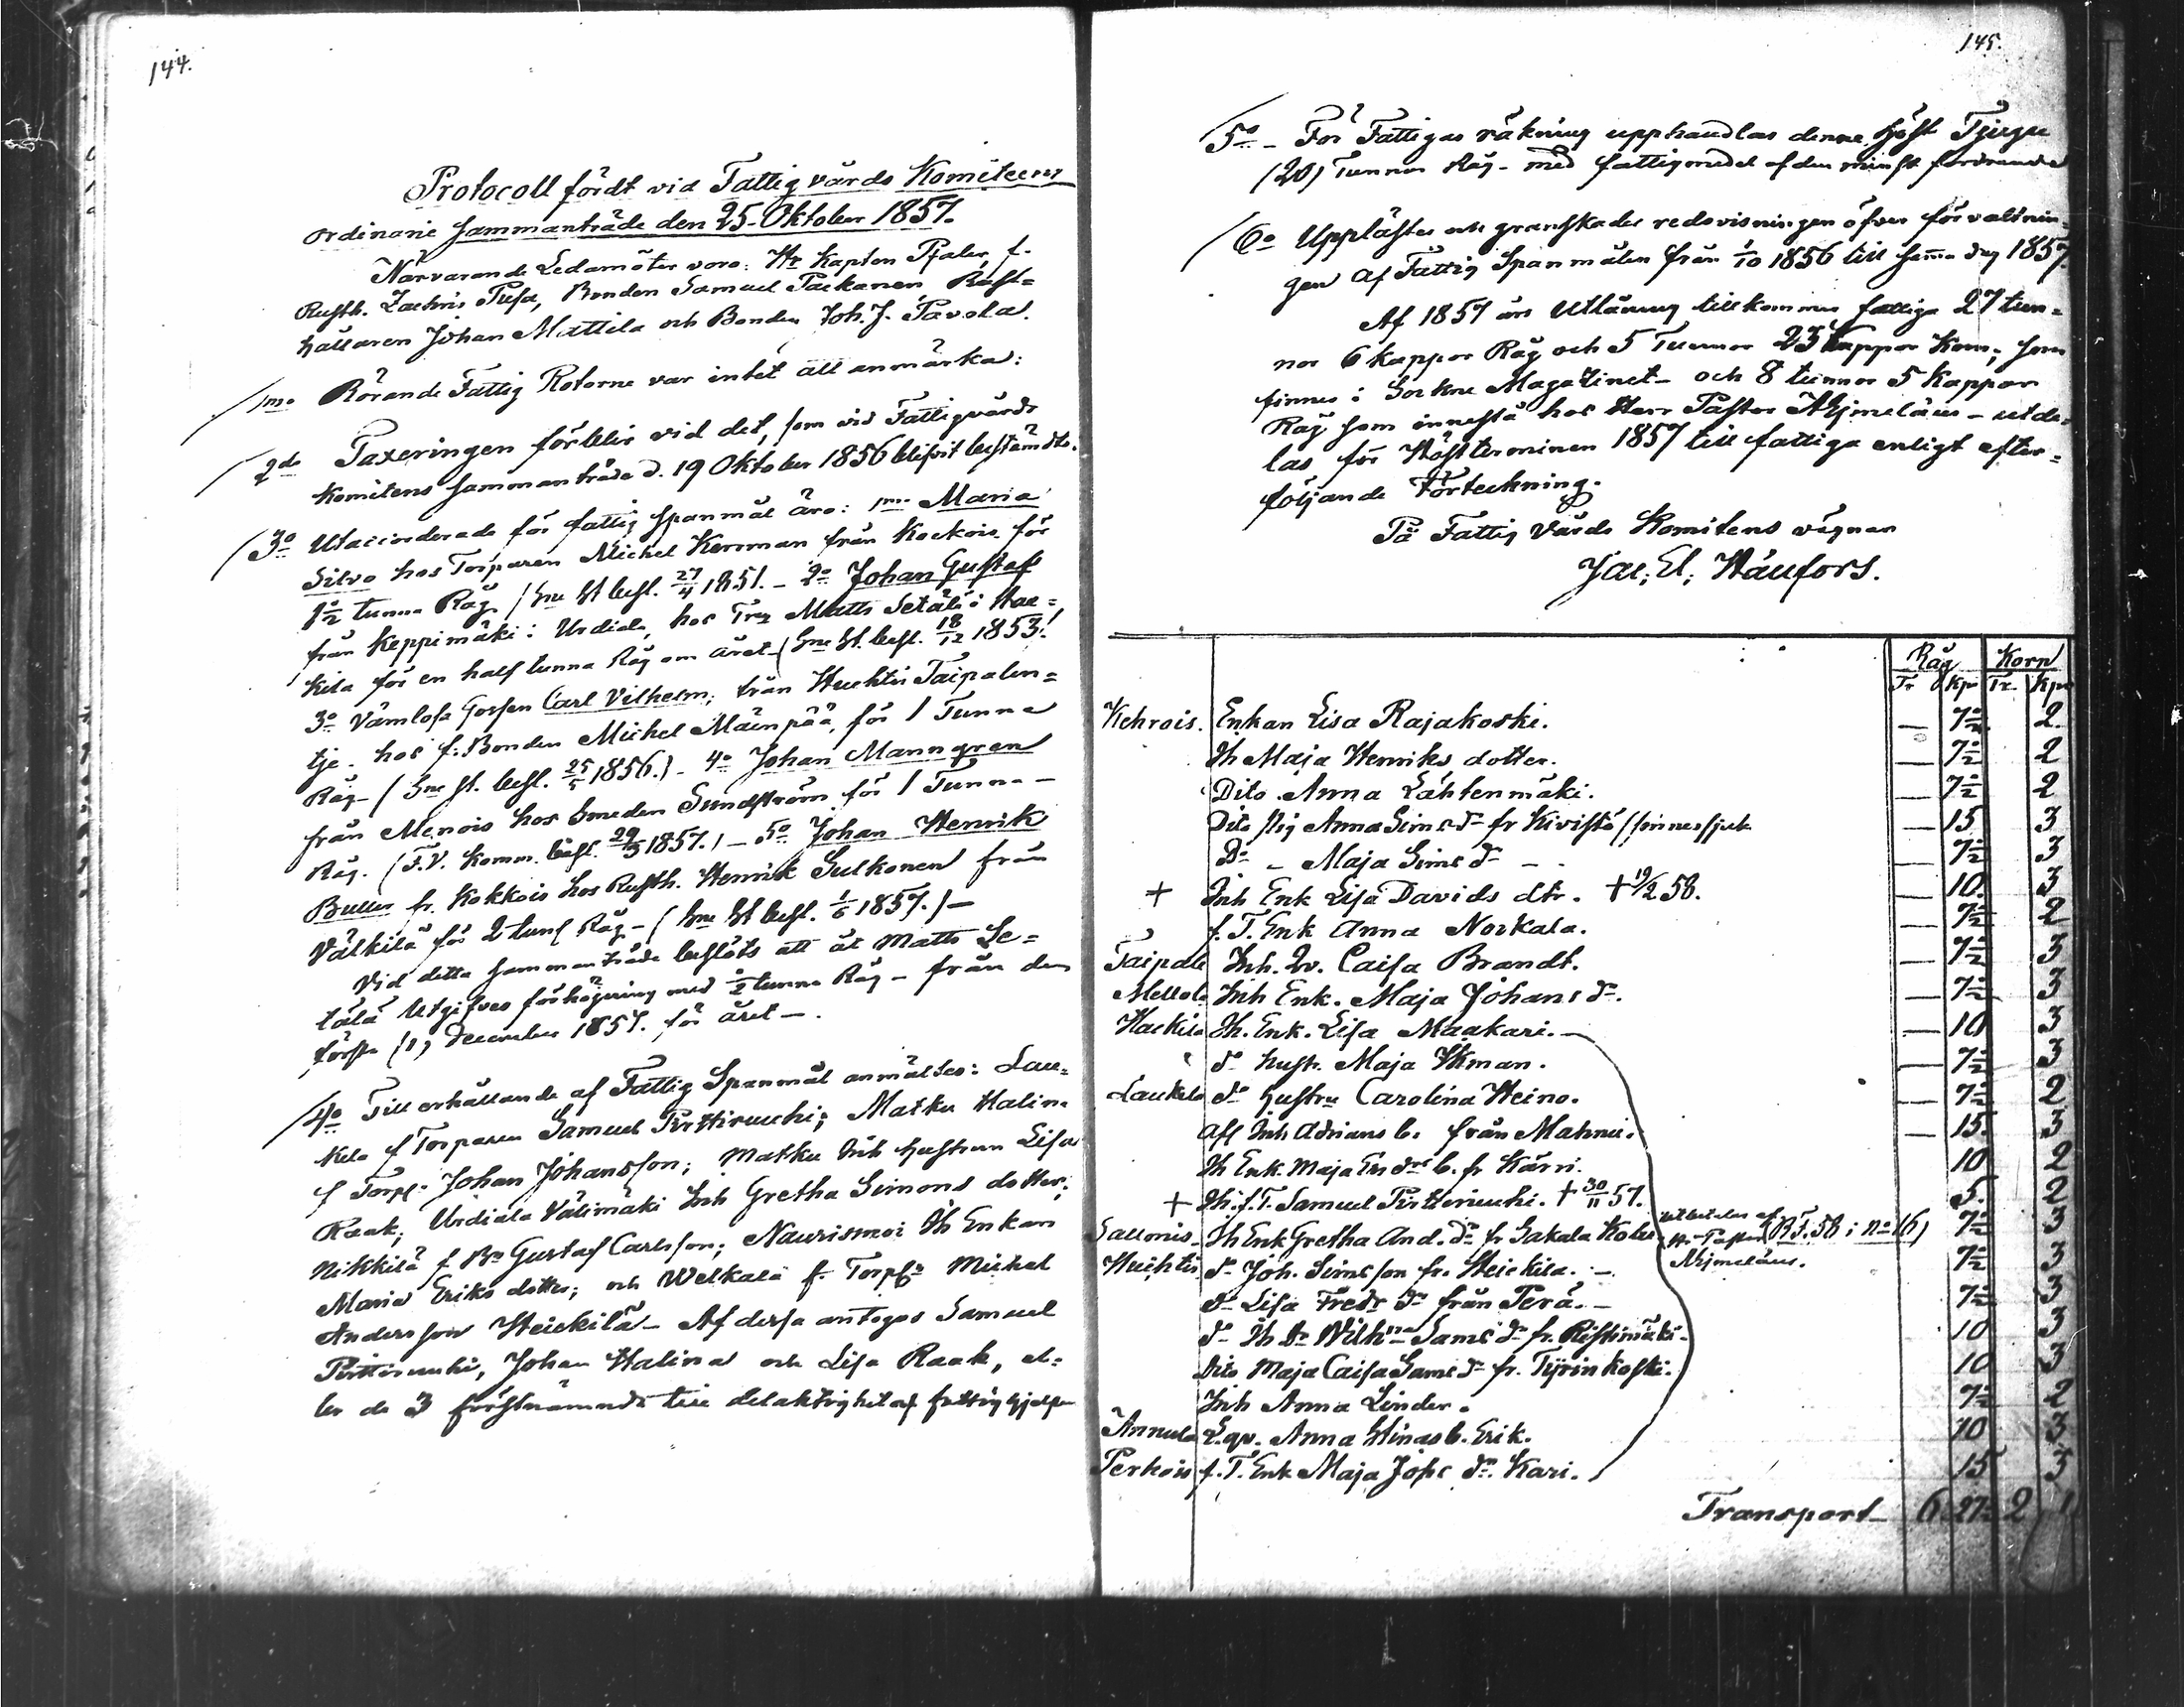 144.
Protocoll fördt vid Fattigvårds Komiteens
ordinarie sammanträde den 25. Oktober 1857.
Närvarande Ledamöter voro: Hr Kapten Pfaler, f.
Rusth. Zachris Pusa, Bonden Samuel Packanen, Rust=
hållaren Johan Mattila och Bonden Joh. J. Pavola.
1mo Rörande Fattig Rotorne var intet att anmärka:
2do Taxeringen förblir vid det, som vid Fattigvårds
Komitens sammanträde d. 19 Oktober 1856 blifvit bestämdt.
3o Utaccorderade för fattig spanmål äro: 1mo Maria
Silvo hos Torparen Michel Herrman från Kockois för
1½ tunna Råg. (Sne St. besl. 27/4 1851. – 2o Johan Gustaf
från Keppimäki i Urdiala, hos Trp Matts Setälä i Hac=
kila för en half tunna Råg om året (Sne St. besl. 18/12 1853.)
3o Vämlosa Gossen Carl Vilhelm, från Huhtis Taipalen=
tje. hos f. Bonden Michel Mäenpää, för 1 Tunna
Råg – (Sne St. besl. 25/5 1856.) – 4o Johan Manngren
från Menois hos Smeden Sundström för 1 Tunna –
Råg. (F.V. Komm. besl. 29/3 1857.) – 5o Johan Henrik
Buller fr. Kokkois hos Rusth. Henrik Sulkonen från
Välkilä för 2 tunn Råg – (Sne St besl. 1/6 1857.) –
Vid detta sammanträde beslöts att åt Matts Se=
tälä utgifves förhögning med ½ tunna Råg – från den
första (1) December 1857. för året –.
4o Till erhållande af Fattig Spanmål anmältes: Lau=
kela f Torparen Samuel Pirttiruuhi; Matku Halina
f Torps: Johan Johansson; Matku Inh Hustrun Lisa
Raak; Urdiala Välimäki Inh Gretha Simons dotter;
Nikkilä f Bo Gustaf Carlsson; Naurismoi Ih Enkan
Maria Eriks dotter; och Welkala f. Torpn Michel
Andersson Heickilä – Af dessa antogos Samuel
Pirttiruuhi, Johan Halina och Lisa Raak, el=
ler de 3 förstnämnda till delaktighet af fattighjelpen
145.
5o – För Fattigas räkning upphandlas denne Höst Tjugu
(20) Tunnor Råg – med fattigmedel af den minst fordrande
6o Upplästes och granskades redovisningen öfver förvaltnin=
gen af Fattig Spanmålen från 1/10 1856 till samma dag 1857.
Af 1857 års Utlåning tillkommer fattiga 27 tun=
nor 6 kappor Råg och 5 Tunnor 23 Kappor Korn; som
finnes i Sockne Magazinet – och 8 tunnor 5 Kappor
Råg som innestå hos Herr Pastor Nyrelæus – utde=
las för Höstterminen 1857 till fattiga enligt efter=
följande Förteckning.
På Fattig Vårds Komitens vägnar
Jac. El.
Råg Korn
Tr Kpr Tr. Kpr
Kehrois. Enkan Lisa Rajakoski. — 7½ 2.
Ih Maja Henriks dotter. — 7½ 2
Dito Anna Lähtenmäki. — 7½ 2
Dito Pig Anna Sims dr fr Kivistö (sinnessjuk — 15 3
Do – Maja Sims dr – — 7½ 3
+ Inh Enk Lisa Davids dtr. † 19/2 58. — 10. 3
f. T. Enk Anna Norkala. — 7½ 2
Taipale Inh. Qv. Caisa Brandt. — 7½ 3
Mellola Inh Enk. Maja Johans dr. — 7½ 3
Hackila Ih. Enk. Lisa Maakari. — 10 3
do Hustr. Maja Ikman. — 7½ 3
Laukela do Hustru Carolina Heino. — 7½ 2
Afl Inh Adrians b. från Mahnu. — 15. 3
Ih Enk. Maja b. fr Kärri. 10 2
+ Ih. f. T. Samuel Pirttiruuhi. † 30/11 57. 5. 2
Sallonis. Ih Enk Gretha And. dr fr Sakala utdelas af Hr Pastor Nyrelæus. (R.F. 58 i no 6) 7½ 3
Huchtis do Joh. Simsson fr. Heickila. – 7½ 3
do Lisa Fredr dr från Perä. – 7½ 3
do Ih Wilhna Sams dr fr. Ristimäki. 10 3
Dito Maja Caisa Sams dr fr. Tyrinkoski. 10 3
Inh Anna Linder. 7½ 2
Annula L. qv. Anna Stinas b. Erik. 10 3
Perkois f. T. Enk Maja Jofs dr. Kari. 15 3
Transport – 6 27½ 2 1